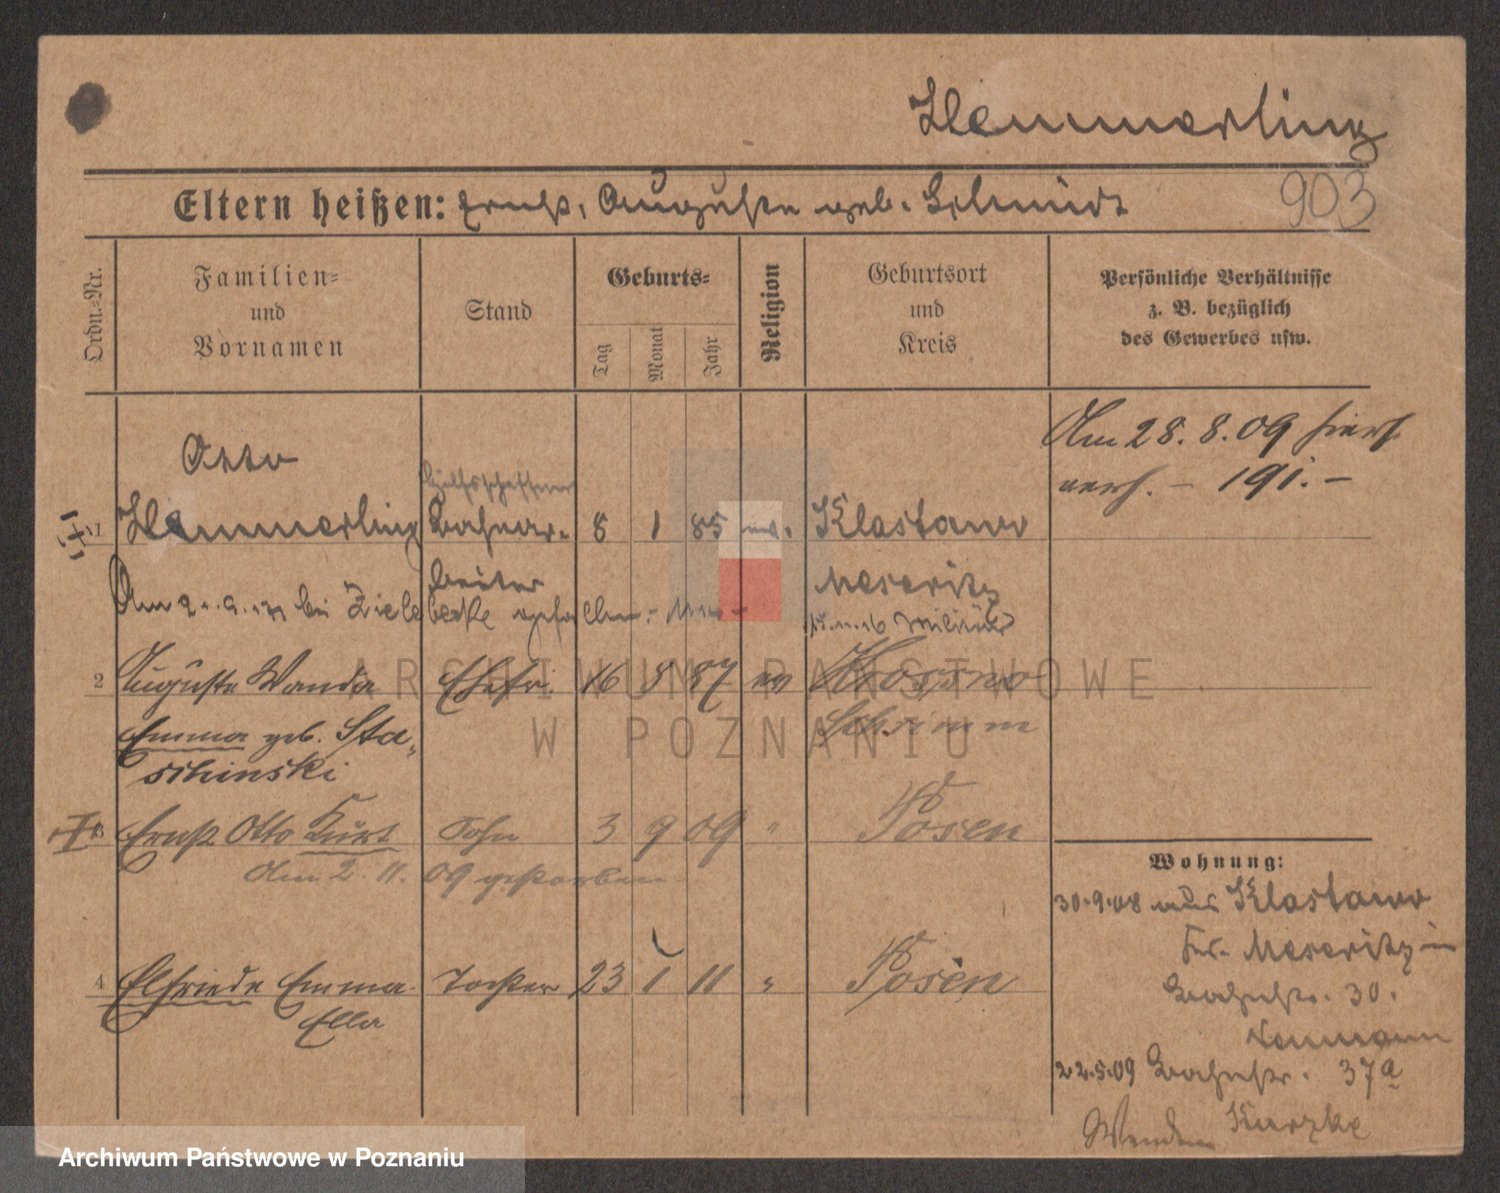 Hemmerling
903
Eltern heißen: Ernst, Auguste geb. Schmidt
Ordn.-Nr.
Familien-
und
Vornamen
Stand
Geburts-
Tag
Monat
Jahr
Religion
Geburtsort
und
Kreis
Persönliche Verhältnisse
z. B. bezüglich
des Gewerbes usw.
Am 28. 8. 09 hier
verh. – 191. –
Otto
Hilfsschaffner
1 Hemmerling Bahnar- 8 1 85 ev. Klastawe
beiter Meseritz
Am bei Ziele gefallen Militär
2 Auguste Wanda Ehefr. 16 87 ev
Emma geb. Sta- Schrimm
schinski
3 Ernst Otto Kurt Sohn 3 9 09 " Posen
Am 2. 11. 09 gestorben
Wohnung:
30.9.08 aus Klastawe
Kr. Meseritz in
Bahnstr. 30.
4 Elfriede Emma Tochter 23 1 11 " Posen
Ella
Neumann
22.5.09 Bahnstr. 37a
Kurzke
Wenden
ARCHIWUM PAŃSTWOWE
W POZNANIU
Archiwum Państwowe w Poznaniu